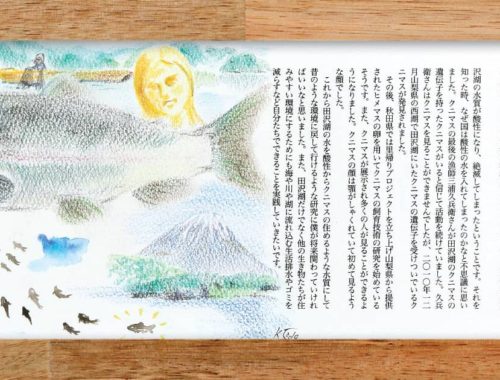 沢湖の水質が酸性になり、絶滅してしまったということです。それを
知った時、なぜ国は酸性の水を入れてしまったのかなと不思議に思い
ました。クニマスの最後の漁師三浦久兵衛さんが田沢湖のクニマスの
遺伝子を持ったクニマスがいると信じて活動を続けていました。久兵
衛さんはクニマスを見ることができませんでしたが、二〇一〇年一二
月山梨県の西湖で田沢湖にいたクニマスの遺伝子を受けついでいるク
ニマスが発見されました。
その後、秋田県では里帰りプロジェクトを立ち上げ山梨県から提供
されたヒメマスの卵を用いてクニマスの飼育技術の研究を始めている
そうです。また、クニマスが展示され多くの人が見ることができるよ
うになりました。クニマスの顔は顎がしゃくれていて初めて見るよう
な顔でした。
これから田沢湖の水を酸性からクニマスの住めるような水質にして
昔のような環境に戻して行けるような研究に僕が将来関わっていけれ
ばいいなと思いました。また、田沢湖だけでなく他の生き物たちが住
みやすい環境にするためにも海や川や湖に流れ込む生活排水やゴミを
減らすなど自分たちでできることを実践していきたいです。